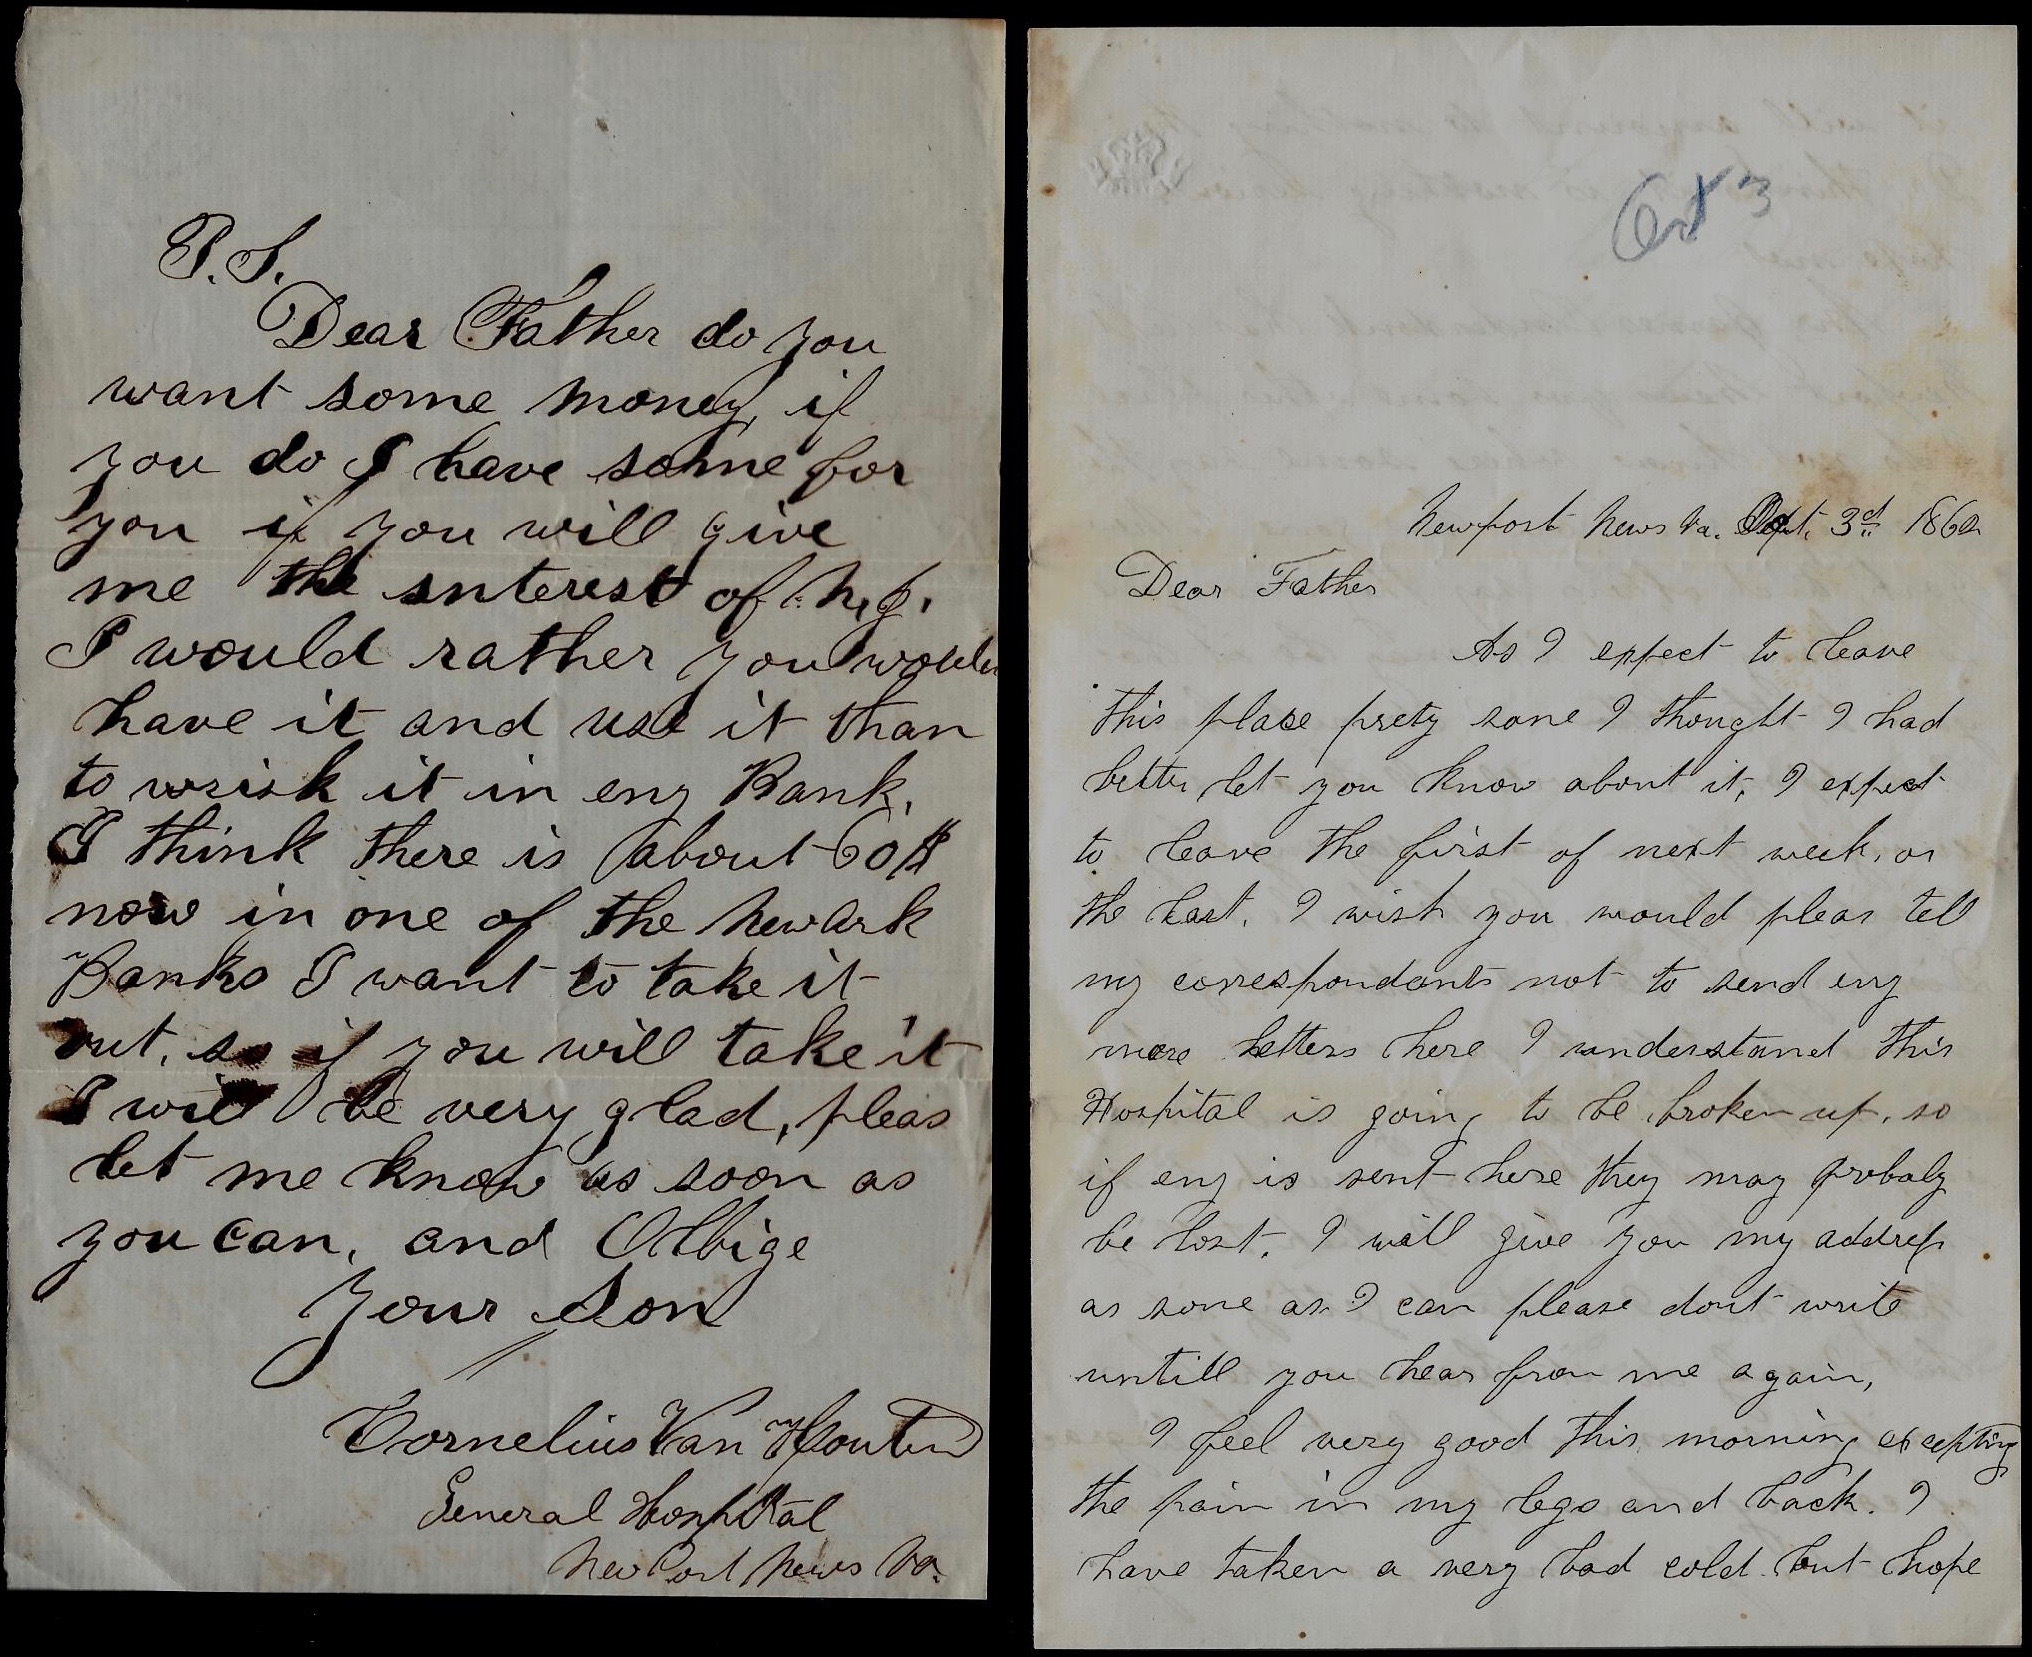 P.S.
Dear Father do you
want some money, if
you do I have some for
you if you will give
me the snterest of N.J.
I would rather you would
have it and use it than
to wrisk it in eny Bank.
I think there is about 60$
now in one of the Newark
Banks I want to take it
out, so if you will take it
I will be very glad, pleas
let me know as soon as
you can, and Oblige
Your Son
Cornelius Van Houten
General Hospital
New Port News Va.
Oct 3
Newport News Va. 3d 1862
Dear Father
As I expect to leave
this place prety sone I thought I had
better let you know about it, I expect
to leave the first of next week, or
the last. I wish you would pleas tell
my correspondants not to send eny
more letters here I understand this
Hospital is going to be broken up, so
if eny is sent here they may probaly
be lost. I will give you my address
as sone as I can please dont write
untill you hear from me again,
I feel very good this morning excepting
the pain in my legs and back. I
have taken a very bad cold but hope